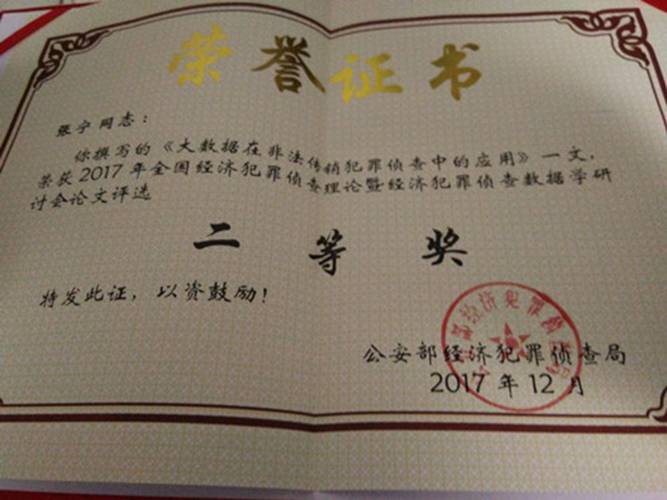 荣誉证书
张宁同志：
你撰写的《大数据在非法传销犯罪侦查中的应用》一文，
荣获2017年全国经济犯罪侦查理论暨经济犯罪侦查数据学研
讨会论文评选
二等奖
特发此证，以资鼓励！
公安部经济犯罪侦查局
2017年12月